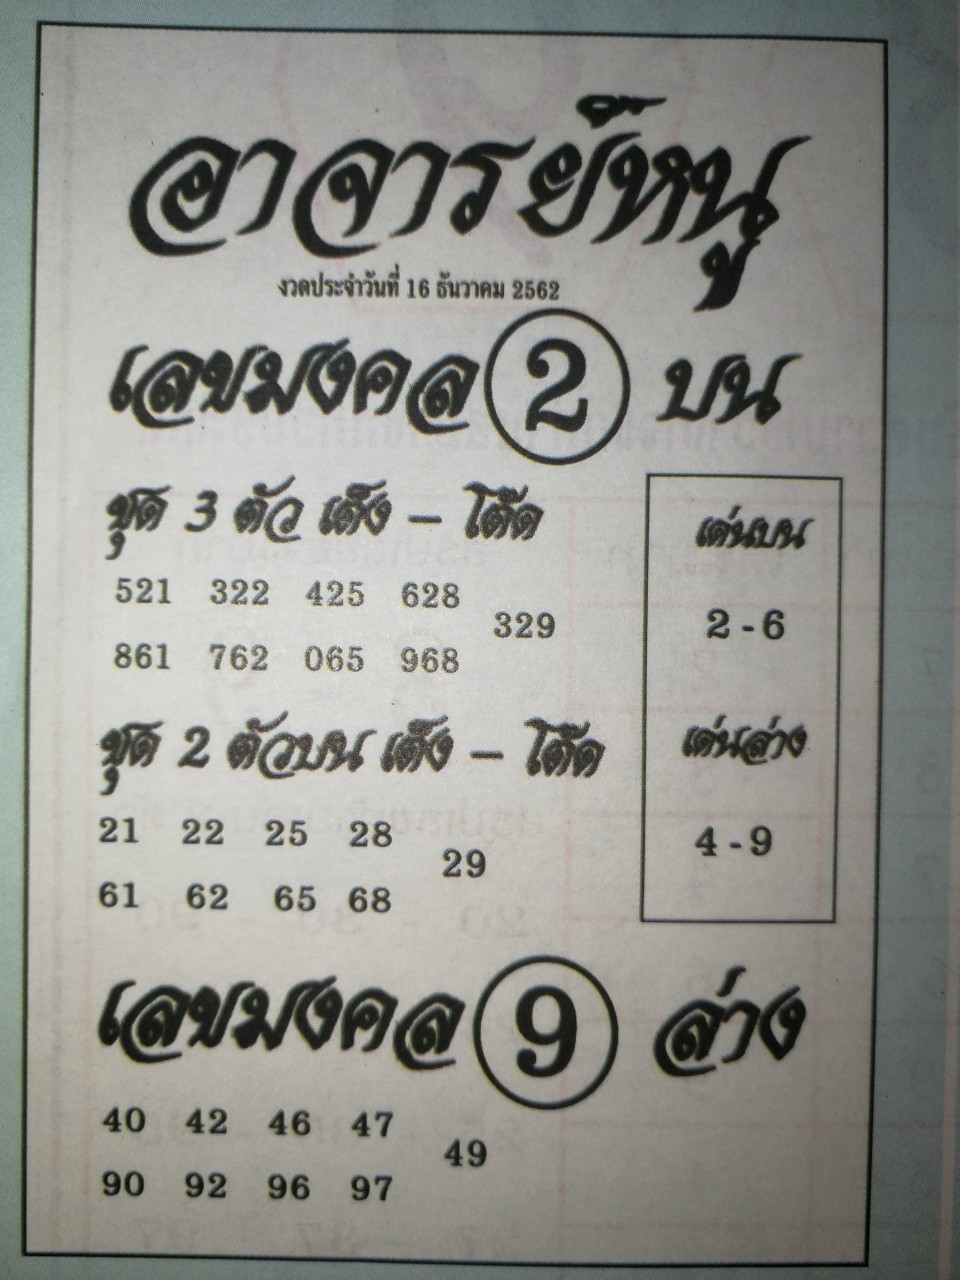 อาจารย์หนู
งวดประจำวันที่ 16 ธันวาคม 2562
เลขมงคล 2 บน
ชุด 3 ตัว เต็ง – โต๊ด
521 322 425 628
329
861 762 065 968
เด่นบน
2 - 6
ชุด 2 ตัวบน เต็ง – โต๊ด
21 22 25 28
29
61 62 65 68
เด่นล่าง
4 - 9
เลขมงคล 9 ล่าง
40 42 46 47
49
90 92 96 97